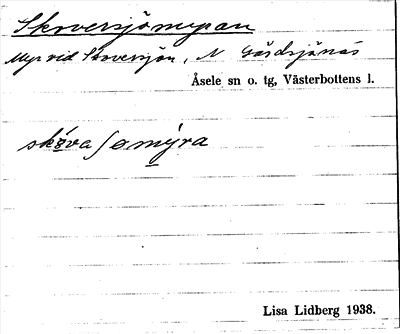 Skoversjömyran
Myr vid Skoversjön, N Gårdsjönäs
Åsele sn o. tg, Västerbottens l.
skòvaʃømýra
Lisa Lidberg 1938.